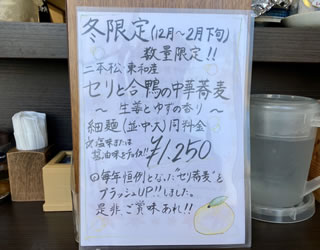 冬限定(12月~2月下旬)
数量限定!!
二本松・東和産
セリと合鴨の中華蕎麦
~生姜とゆずの香り~
細麺(並・中・大)同料金
塩味または
醤油味をチョイス!!
¥1,250
毎年恒例となった"セリ蕎麦"を
ブラッシュUP!!しました。
是非、ご賞味あれ!!